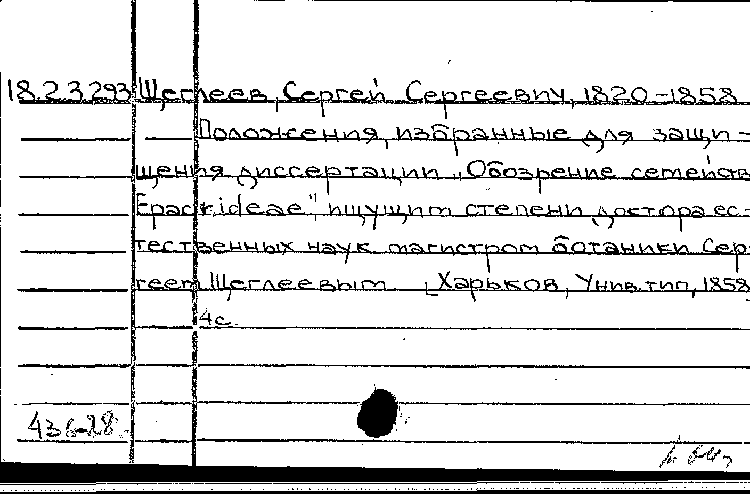 18.23.293 Щеглеев, Сергей Сергеевич, 1820-1858
Положения, избранные для защи-
щения диссертации „Обозрение семейств
Epacrideae", ищущим степени доктора ес-
тественных наук магистром ботаники Сер-
геем Щеглеевым. [Харьков, Унив. тип., 1858
4с.
436-28